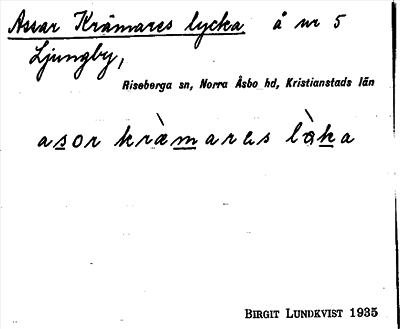 Assar Krämares lycka å nr 5
Ljungby,
Riseberga sn, Norra Åsbo hd, Kristianstads län
asor kràmares làka
BIRGIT LUNDKVIST 1935